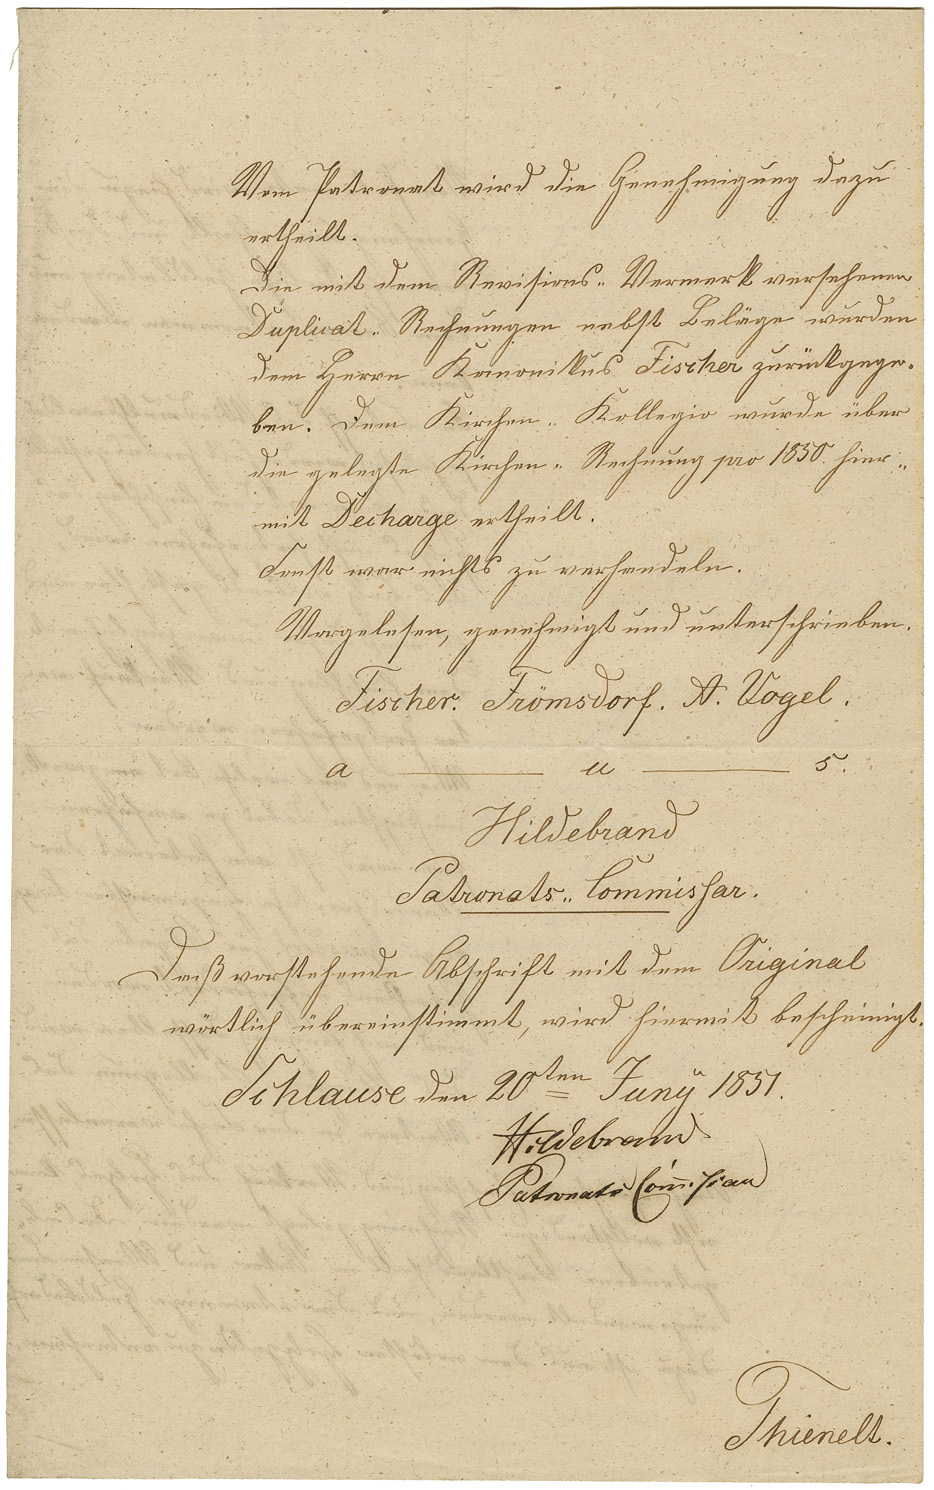 Vom Patronat wird die Genehmigung dazu
ertheilt.
Die mit dem Revisions-Vermerk versehenen
Duplicat-Rechnungen nebst Beläge wurden
dem Herrn Kanonikus Fischer zurückgege-
ben. Dem Kirchen-Kollegio wurde über
die gelegte Kirchen-Rechnung pro 1850. hier-
mit Decharge ertheilt.
Sonst war nichts zu verhandeln.
Vorgelesen, genehmigt und unterschrieben.
Fischer. Frömsdorf. A. Vogel.
a — u — s.
Hildebrand
Patronats-Commissar.
Daß vorstehende Abschrift mit dem Original
wörtlich übereinstimmt, wird hiermit bescheinigt.
Schlause den 20ten Juny 1851.
Hildebrand
Patronats Commissar
Thienelt.